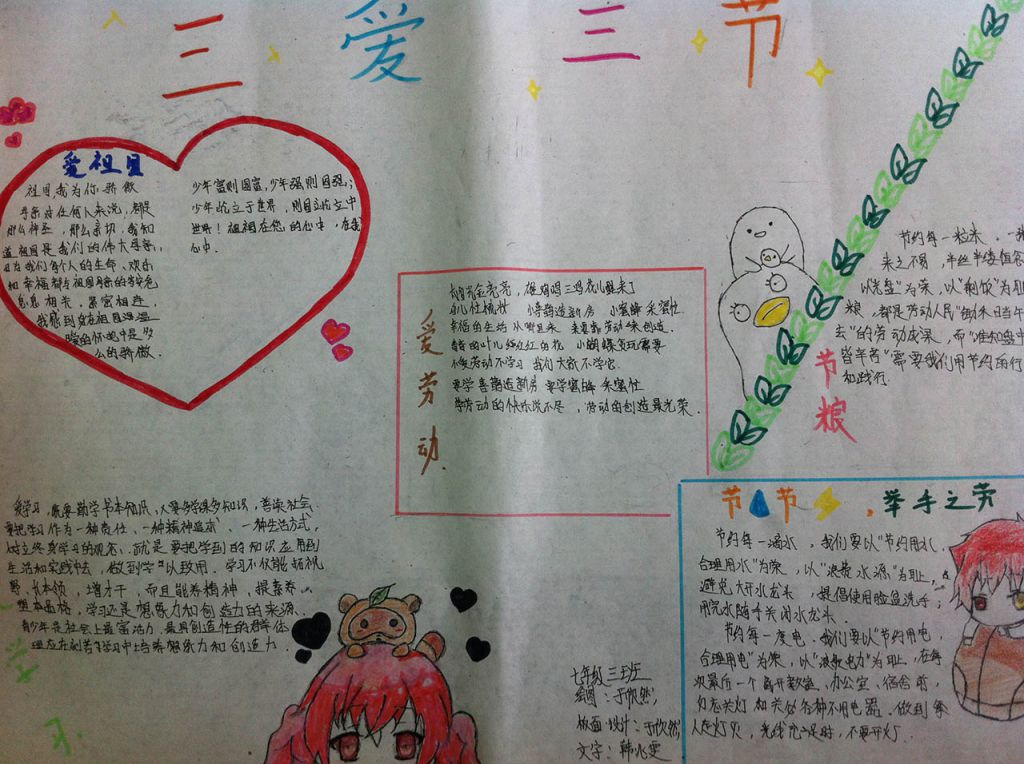 三爱三节
爱祖国
祖国,我为你骄傲
母亲对任何人来说,都是
那么神圣,那么亲切,我知
道祖国是我们的伟大母亲,
因为我们每个人的生命、欢乐
和幸福都与祖国母亲的荣辱
息息相关,累富相连,
我感到
暖的怀抱中是多
么的骄傲.
少年富则国富,少年强则国强;
少年屹立于世界,则国屹立于
世界!祖国在您的心中,在我
心中.
爱劳动
亮亮,雄鸡鸣三鸣花儿醒来了
小喜鹊造新房 小蜜蜂采蜜忙
幸福的生活从哪里来 要靠劳动来创造.
青青的叶儿红红的花 小蝴蝶贪玩耍
不爱劳动不学习 我们大家不学它.
要学喜鹊造新房 要学蜜蜂采蜜忙
劳动的快乐说不尽,劳动的创造最光荣.
节约每一粒米.一
来之不易,半丝半缕恒念
以“光盘”为荣,以“剩饭”为耻
粮,都是劳动人民“锄禾日当午
去”的劳动成果,而“谁知盘中
皆辛苦”需要我们用节约的行
和践行.
节粮
爱学习,既要勤学书本知识,又要多学课外知识,善读社会
要把学习作为一种责任、一种精神追求、一种生活方式,
树立终身学习的观念,就是要把学到的知识应用到
生活和实践中去,做到学以致用.学习不仅能拓视
野、长本领,增才干,而且能养精神,提素养,
塑本品格,学习还是想象力和创造力的来源.
青少年是社会上最富活力、最具创造性的群体
理应在刻苦学习中培养想象力和创造力.
学
习
节节,举手之劳
节约每一滴水,我们要以“节约用水,
合理用水”为荣,以“浪费水源”为耻,
避免大开水龙头,提倡使用脸盆洗手;
用完水随手关闭水龙头.
节约每一度电.我们要以“节约用电,
合理用电”为荣,以“浪费电力”为耻,在每
次最后一个离开教室、办公室、宿舍时,
灯和关好各种不用电器.做到
人走灯灭,光线充足时,不要开灯.
七年级三班
绘图:于欣然,
版面设计:于欣然,
文字:韩兆雯